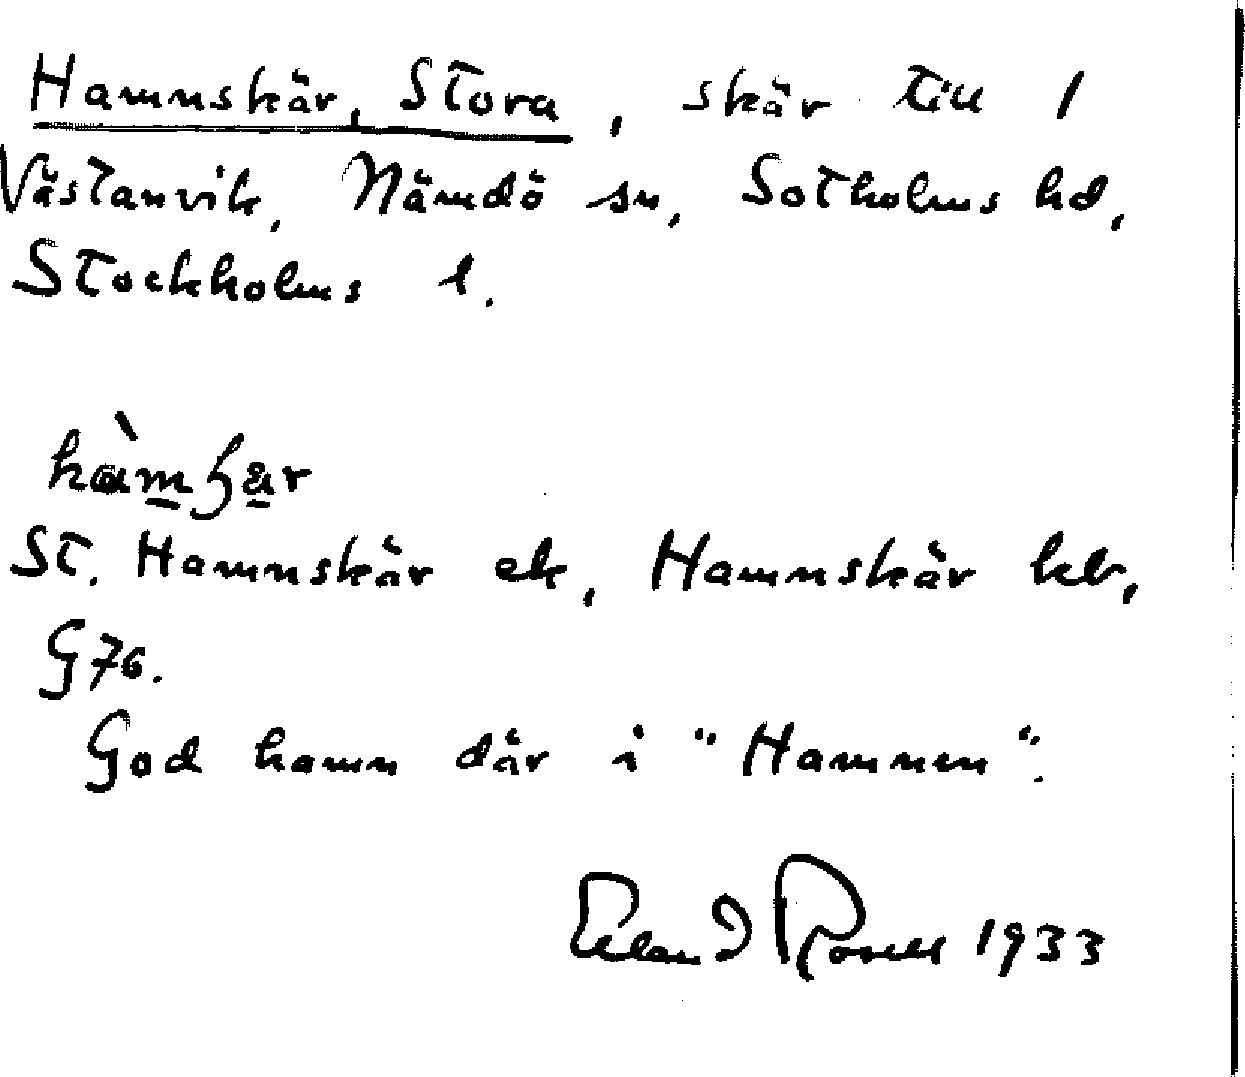 Hamnskär, Stora, skär till 1
Västanvik, Nämdö sn, Sotholms hd,
Stockholms l.
St. Hamnskär ek, Hamnskär kb,
G76.
God hamn där i "Hamnen".
Erland Rosell 1933